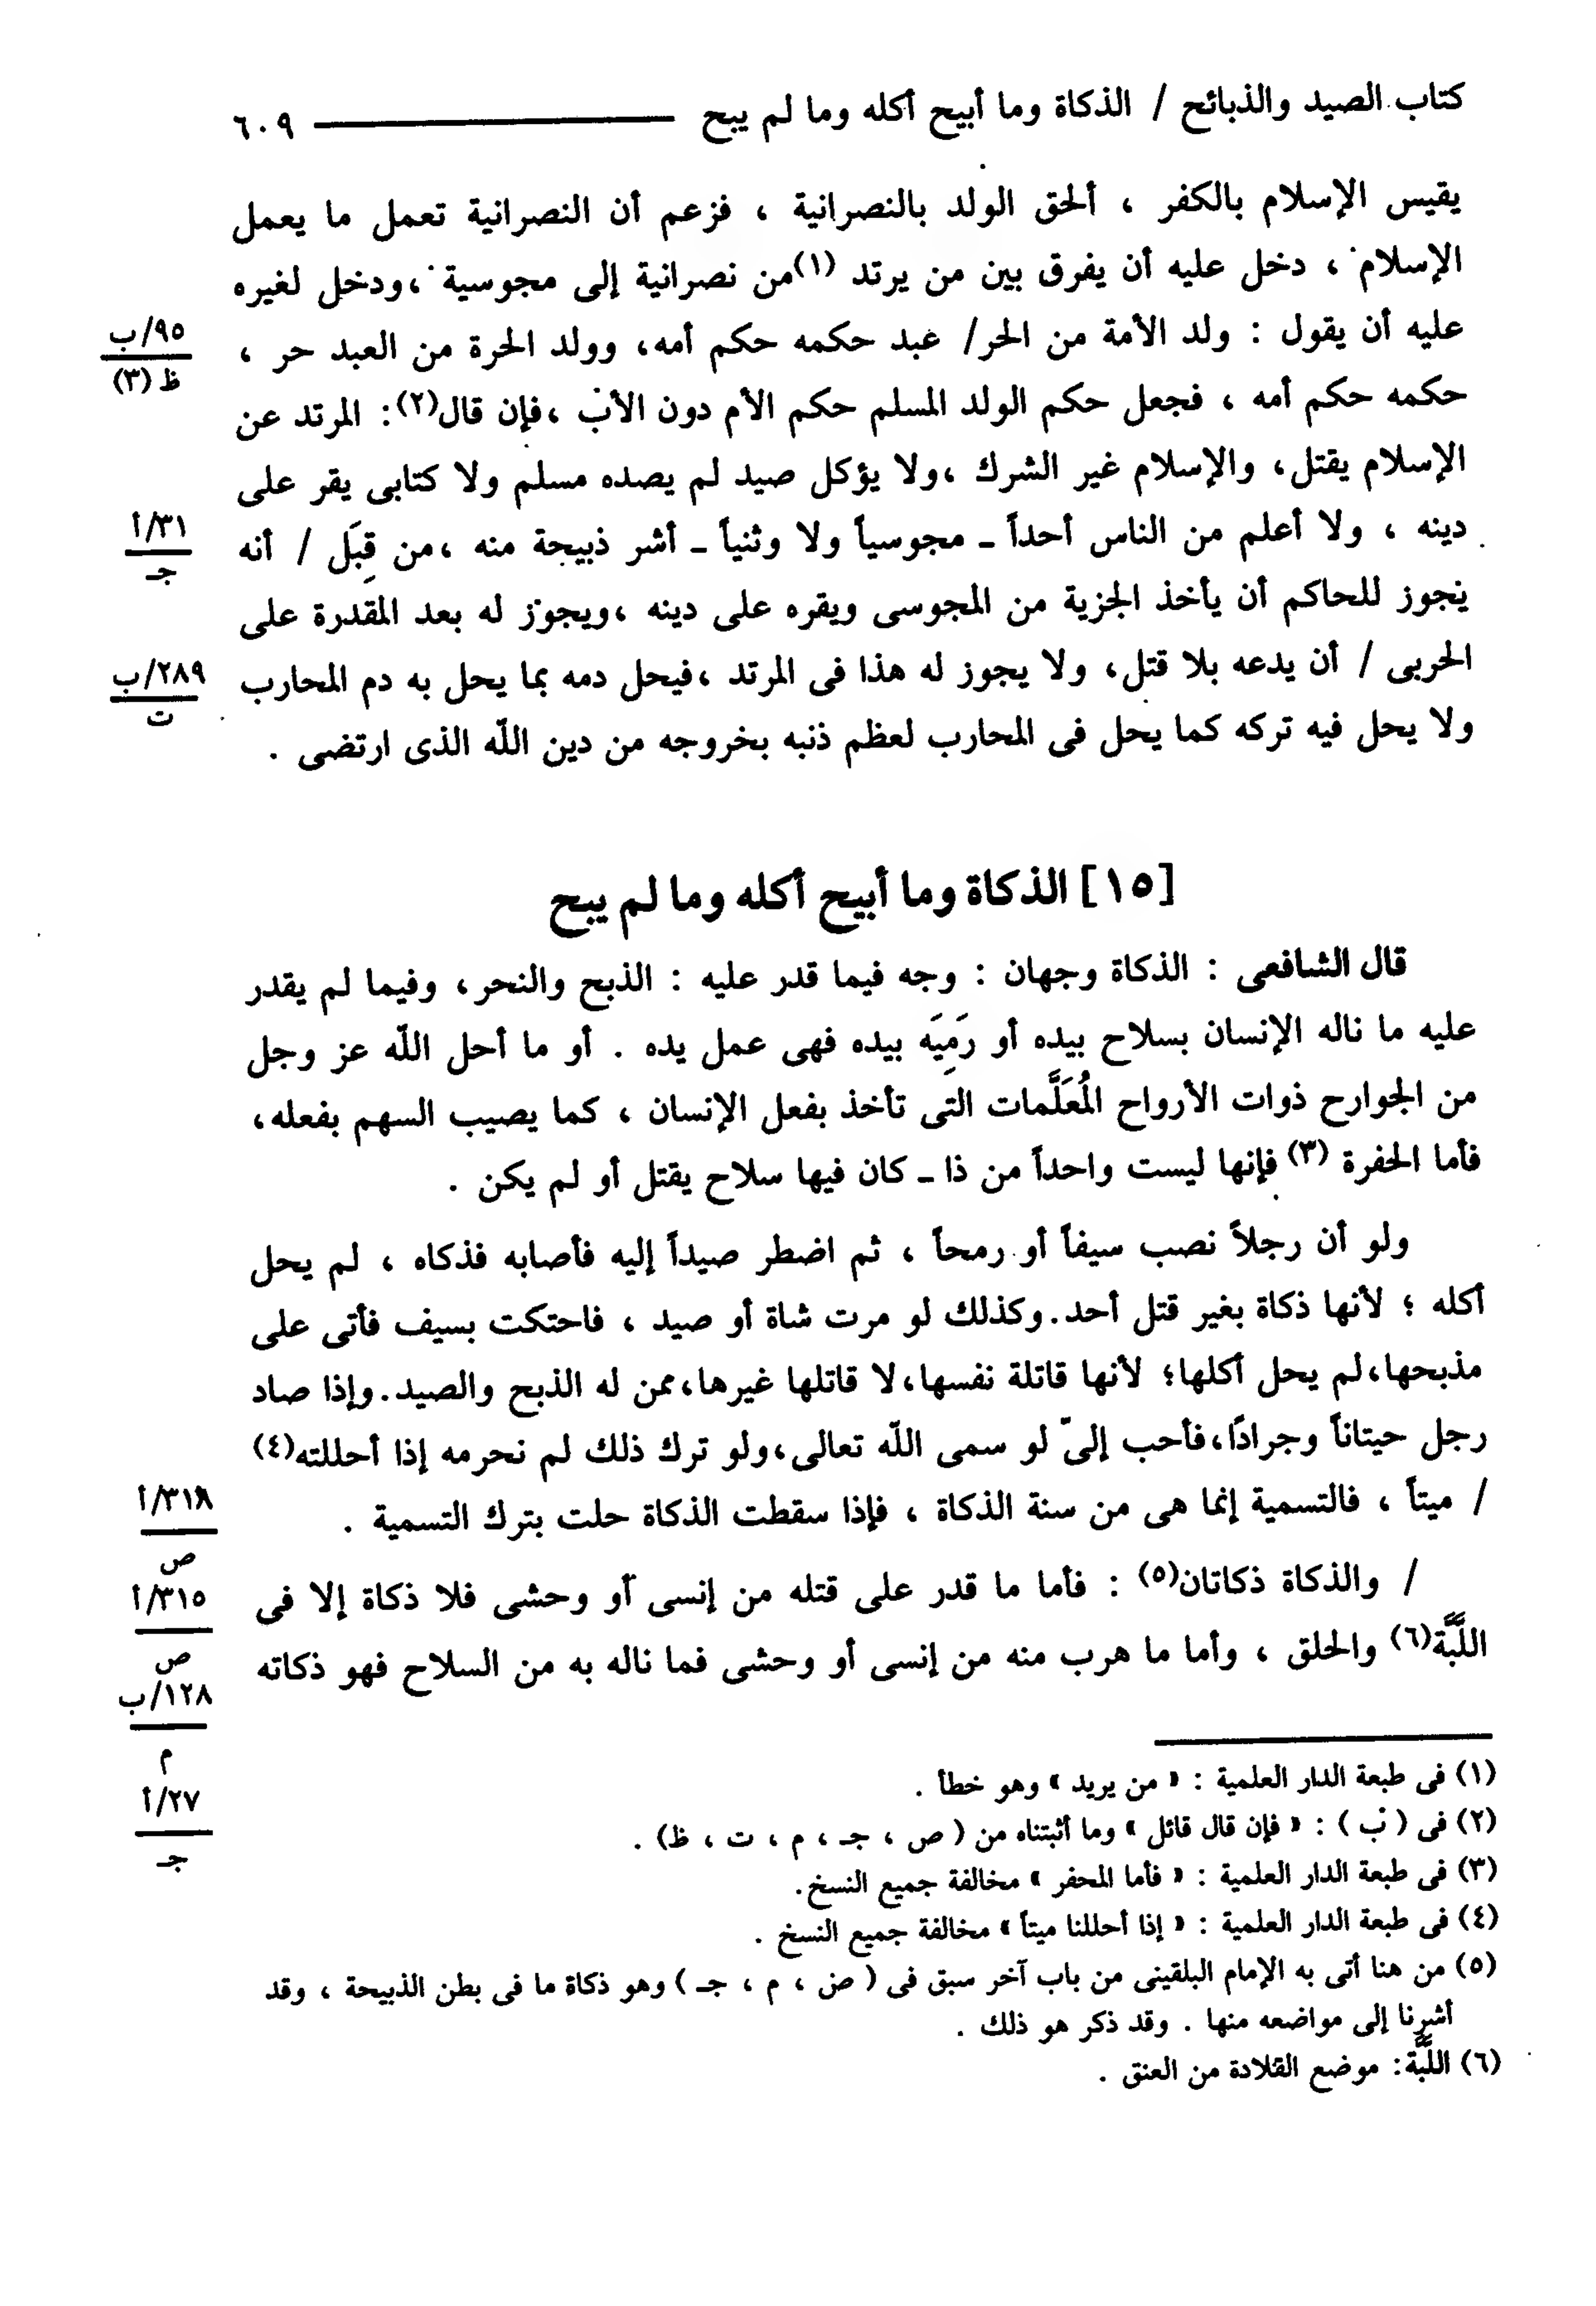 كتاب الصيد والذبائح / الذكاة وما أبيح أكله وما لم يبح ٦٠٩
يقيس الإسلام بالكفر ، ألحق الولد بالنصرانية ، فزعم أن النصرانية تعمل ما يعمل
الإسلام ، دخل عليه أن يفرق بين من يرتد (١)من نصرانية إلى مجوسية ،ودخل لغيره
عليه أن يقول : ولد الأمة من الحر/ عبد حكمه حكم أمه، وولد الحرة من العبد حر ،
٩٥/ب
ظ (٣)
حكمه حكم أمه ، فجعل حكم الولد المسلم حكم الأم دون الأب ،فإن قال(٢): المرتد عن
الإسلام يقتل، والإسلام غير الشرك ،ولا يؤكل صيد لم يصده مسلم ولا كتابى يقر على
دينه ، ولا أعلم من الناس أحداً ـ مجوسياً ولا وثنياً ـ أشر ذبيحة منه ،من قِبَلِ / أنه
٣١/أ
جـ
يجوز للحاكم أن يأخذ الجزية من المجوسى ويقره على دينه ،ويجوز له بعد المقدرة على
الحربى / أن يدعه بلا قتل، ولا يجوز له هذا فى المرتد ،فيحل دمه بما يحل به دم المحارب
٢٨٩/ب
ت
ولا يحل فيه تركه كما يحل فى المحارب لعظم ذنبه بخروجه من دين اللّه الذى ارتضى .
[١٥] الذكاة وما أبيح أكله وما لم يبح
قال الشافعى : الذكاة وجهان : وجه فيما قدر عليه : الذبح والنحر، وفيما لم يقدر
عليه ما ناله الإنسان بسلاح بيده أو رَمِيَه بيده فهى عمل يده . أو ما أحل اللّه عز وجل
من الجوارح ذوات الأرواح المُعَلَّمات التى تأخذ بفعل الإنسان ، كما يصيب السهم بفعله،
فأما الحفرة (٣) فإنها ليست واحداً من ذا ـ كان فيها سلاح يقتل أو لم يكن .
ولو أن رجلاً نصب سيفاً أو رمحاً ، ثم اضطر صيداً إليه فأصابه فذكاه ، لم يحل
أكله ؛ لأنها ذكاة بغير قتل أحد.وكذلك لو مرت شاة أو صيد ، فاحتكت بسيف فأتى على
مذبحها،لم يحل أكلها؛ لأنها قاتلة نفسها،لا قاتلها غيرها،ممن له الذبح والصيد.وإذا صاد
رجل حيتاناً وجرادًا،فأحب إلىّ لو سمى اللّه تعالى،ولو ترك ذلك لم نحرمه إذا أحللته(٤)
/ ميتاً ، فالتسمية إنما هى من سنة الذكاة ، فإذا سقطت الذكاة حلت بترك التسمية .
٣١٨/أ
ص
/ والذكاة ذكاتان(٥) : فأما ما قدر على قتله من إنسى أو وحشى فلا ذكاة إلا فى
٣١٥/أ
ص
اللَّبَّة(٦) والحلق ، وأما ما هرب منه من إنسى أو وحشى فما ناله به من السلاح فهو ذكاته
١٢٨/ب
م
٢٧/أ
جـ
(١) فى طبعة الدار العلمية : « من يريد » وهو خطأ .
(٢) فى ( ب ) : « فإن قال قائل » وما أثبتناه من ( ص ، جـ ، م ، ت ، ظ) .
(٣) فى طبعة الدار العلمية : « فأما المحفر » مخالفة جميع النسخ.
(٤) فى طبعة الدار العلمية : « إذا أحللنا ميتاً » مخالفة جميع النسخ .
(٥) من هنا أتى به الإمام البلقينى من باب آخر سبق فى ( ص ، م ، جـ ) وهو ذكاة ما فى بطن الذبيحة ، وقد
أشرنا إلى مواضعه منها . وقد ذكر هو ذلك .
(٦) اللَّبَّة: موضع القلادة من العنق .